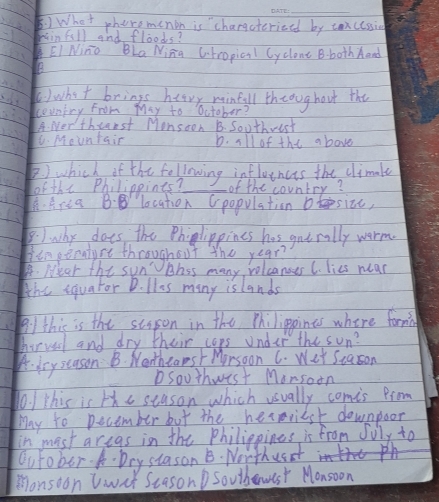 DATE:
5.) What pheromenon is "characterized by excessive
rainfall and floods?
A El Niño B La Niña C tropical Cyclone D both A and
B
6.) what brings heavy rainfall throughout the
country from May to October?
A. Northearst Monsoon B. Southwest
C. Mountair D. all of the above
7.) which of the following influences the climate
of the Philippines? of the country?
A. Area B. location C population D size,
8.) why does the Philippines has generally warm
temperature throughout the year?
A. Near the sun B. has many volcanoes C. lies near
the equator D. Has many islands
9.) this is the season in the Philippines where
harved and dry their cops under the sun?
A. dry season B. Northearst Morsoon C. Wet Season
D Southwest Monsoon
10.) this is the season which usually comes from
May to December but the heaviest downpoor
in mast areas in the Philippines is from July to
October. A. Dry season B. Northeast in the Ph
Monsoon C wet season D Southwest Monsoon